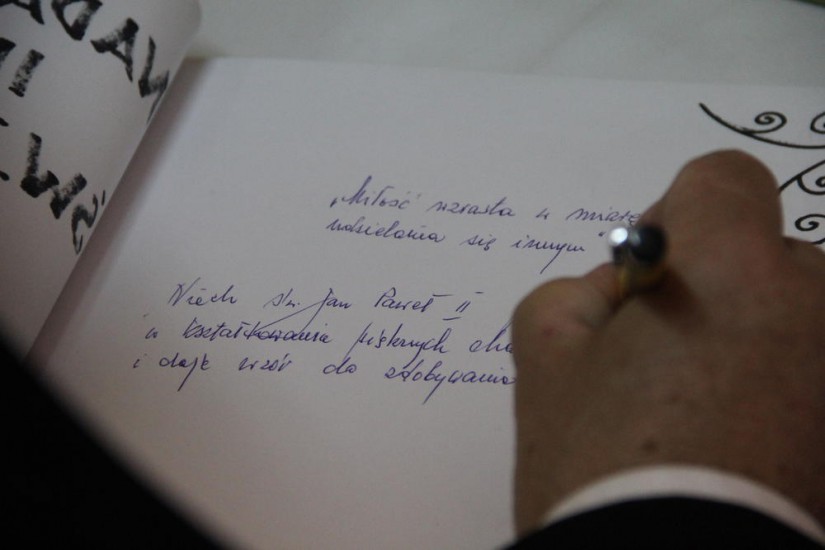 „Miłość wzrasta w miarę
udzielania się innym"
Niech św. Jan Paweł II
w kształtowaniu pięknych cha
i daje wzór do zdobywania